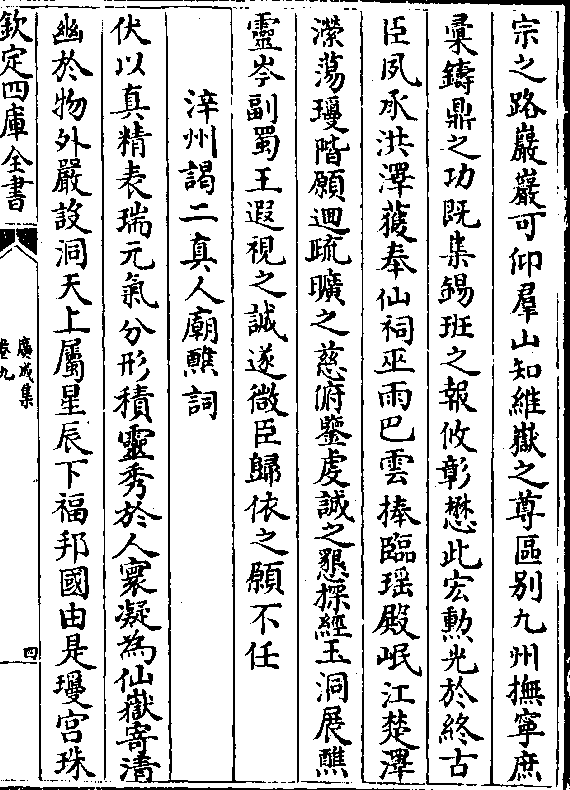 宗之路巖巖可仰羣山知維嶽之尊區别九州撫寧庶
彚鑄鼎之功既集錫班之報攸彰懋此宏勲光於終古
臣夙承洪澤獲奉仙祠巫雨巴雲捧臨瑶殿岷江楚澤
瀠蕩瓊階願迴疏曠之慈俯鑒虔誠之懇探經玉洞展醮
靈岑副蜀王遐視之誠遂微臣歸依之願不任
梓州謁二真人廟醮詞
伏以真精表瑞元氣分形積靈秀於人寰凝為仙嶽寄清
幽於物外嚴設洞天上屬星辰下福邦國由是瓊宫珠
欽定四庫全書
廣成集
卷九
四